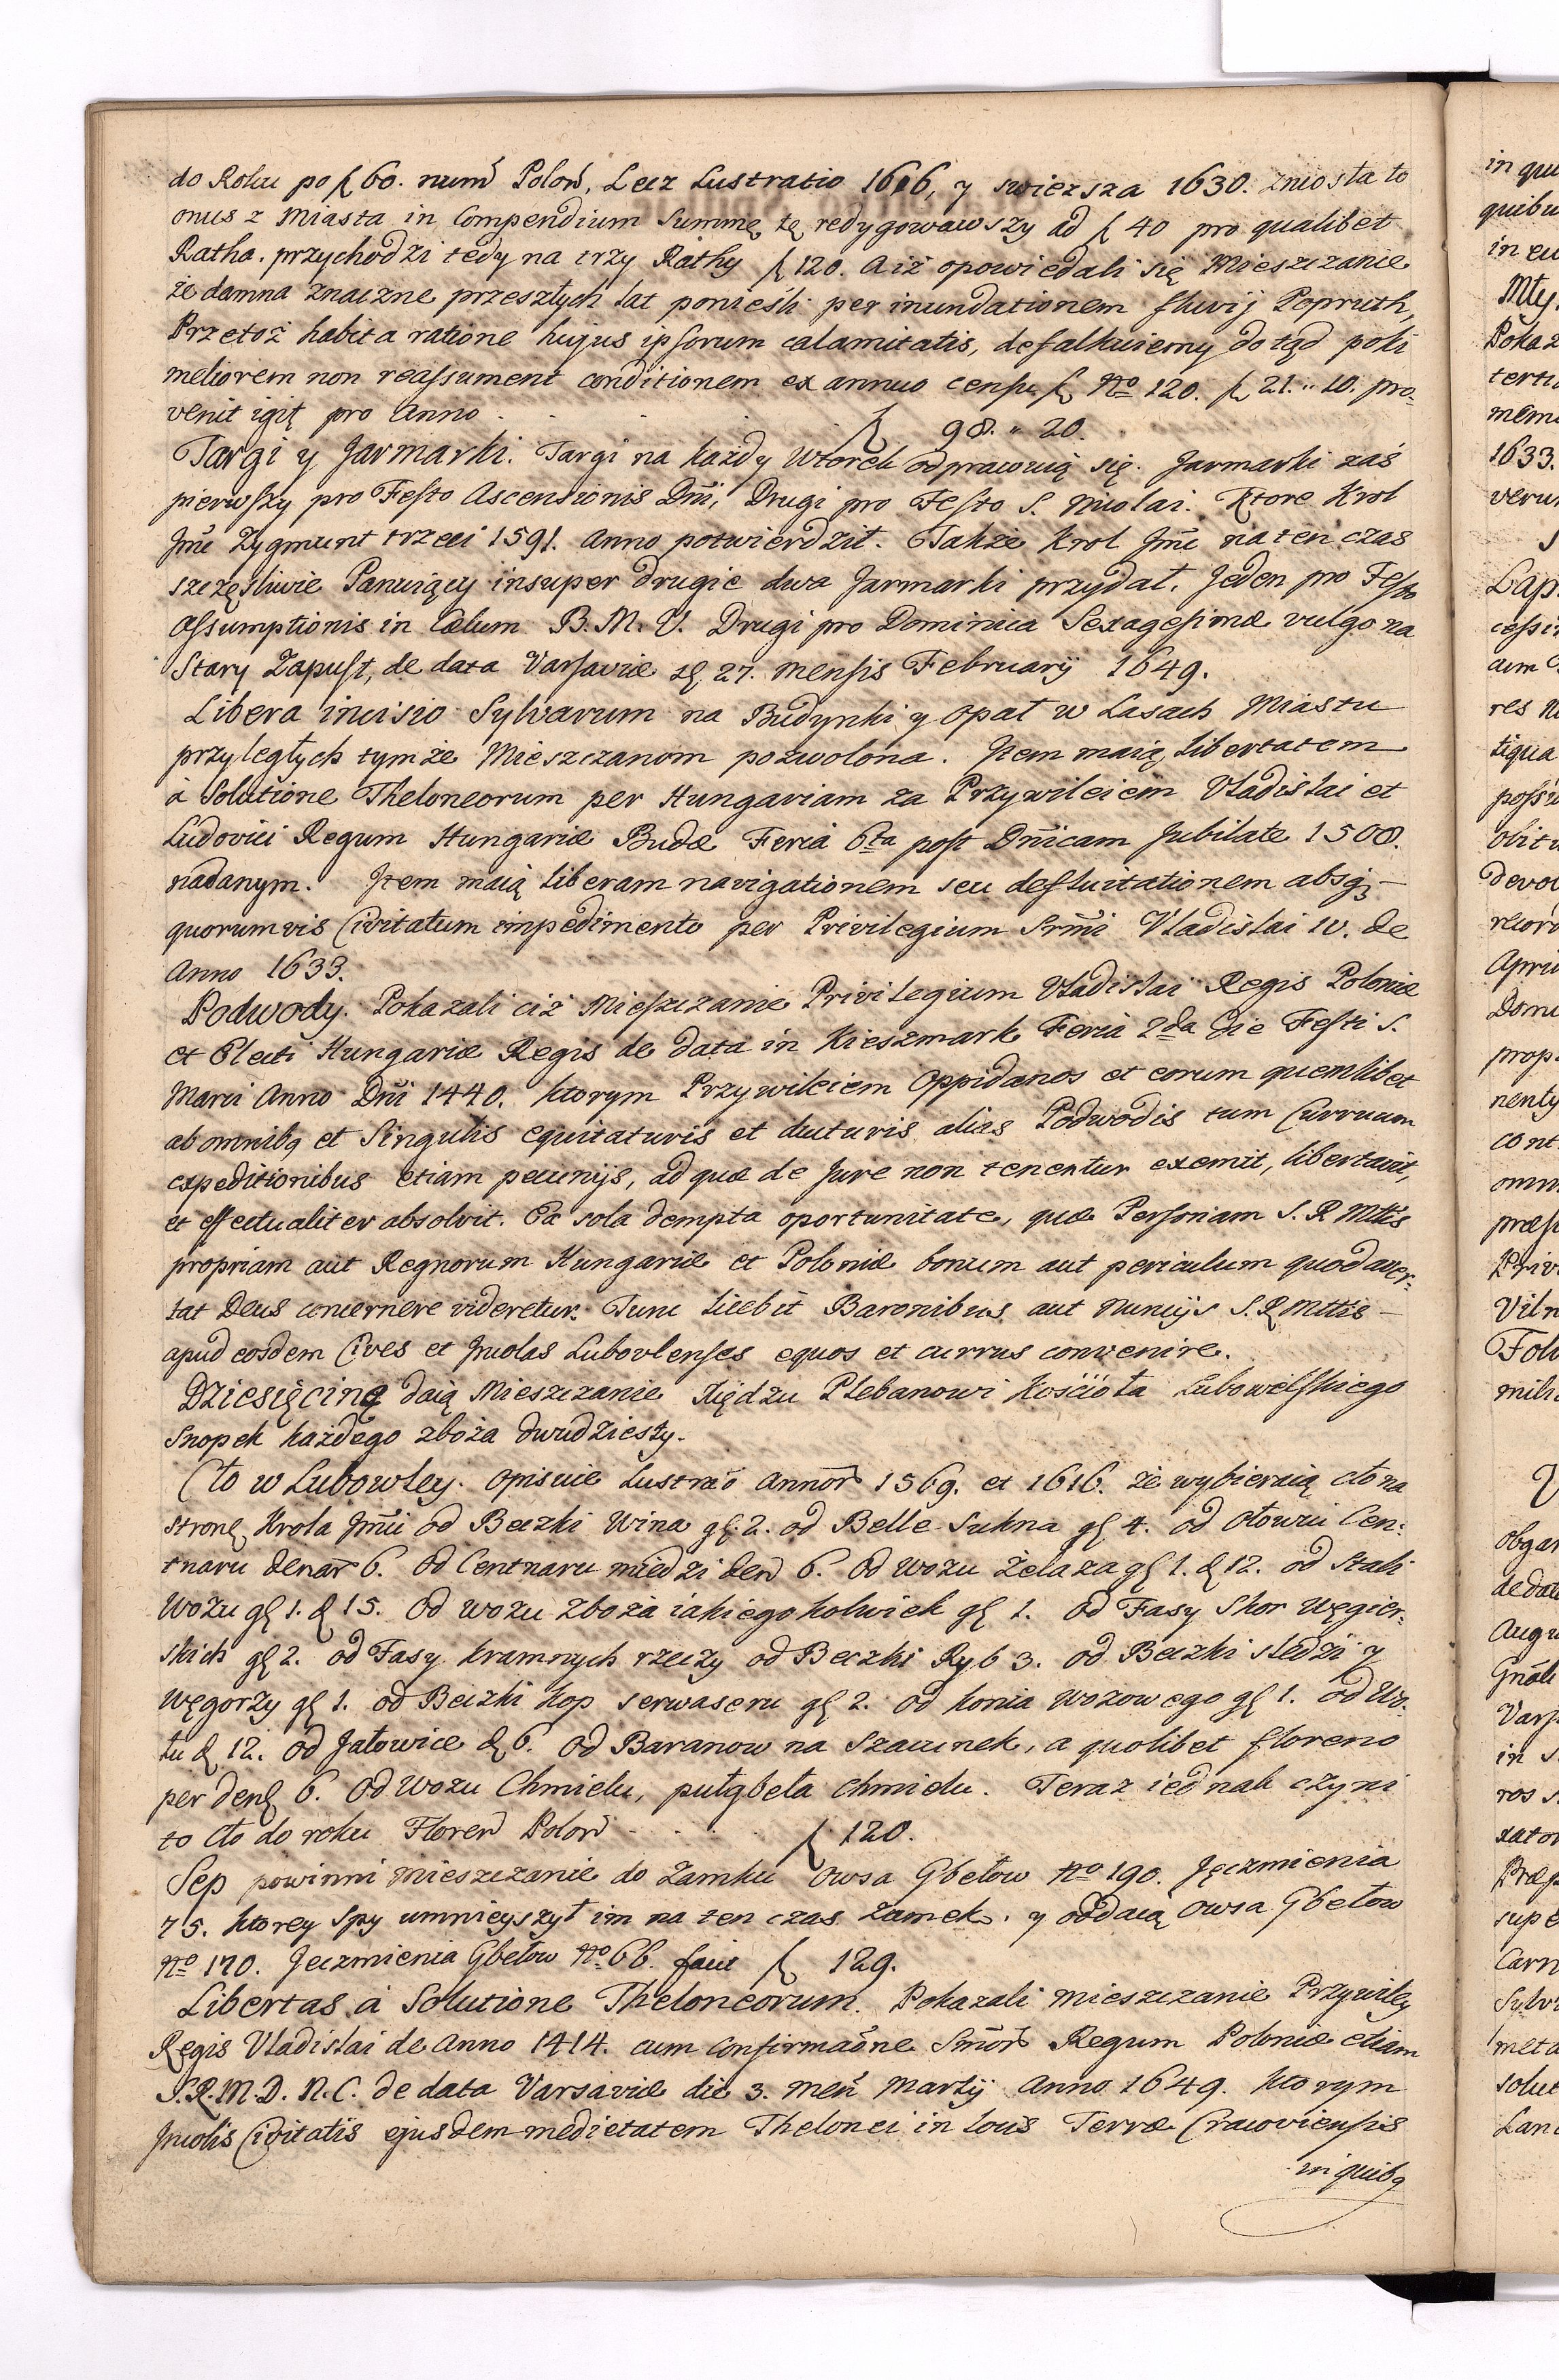 do Roku po f 60. num̃ Polon̄, Lecz Lustratio 1616, y swiezsza 1630. zniosła to
onus z Miasta in Compendium Summę tę redygowawszy ad f 40 pro qualibet
Ratha. przychodzi tedy na trzy Rathy f 120. A iż opowiedali się Mieszczanie
że damna znaczne przeszłych lat ponieśli per inundationem fluvij Popruth,
Przetoż habita ratione hujus ipsorum calamitatis, defalkuiemy dotąd poki
meliorem non reassument conditionem ex annuo censu f No 120. f 21. " 10. pro-
venit igit̨ pro Anno . . . . f 98. " 20.
Targi y Jarmarki. Targi na każdy Wtorek odprawuią się. Jarmarki zaś
pierwszy pro Festo Ascensionis Dn̄i, Drugi pro Festo S. Nicolai. Ktore Krol
Jm̄ć Zygmunt trzeci 1591. Anno potwierdził. Także Krol Jm̄ć na ten czas
szczęśliwie Panuiący insuper drugie dwa Jarmarki przydał. Jeden pro Festo
Assumptionis in Cælum B. M. V. Drugi pro Dominica Sexagesimæ vulgo na
Stary Zapust, de data Varsaviæ d. 27. mensis February 1649.
Libera incisio Sylvarum na Budynki y Opał w Lasach Miastu
przyległych tymże Mieszczanom pozwolona. Item maią Libertatem
à Solutione Theloneorum per Hungariam za Przywileiem Vladislai et
Ludovici Regum Hungariæ Budæ Feria 6ta post Dn̄icam Jubilate 1508.
nadanym. Item maią Liberam navigationem seu defluitationem absq̨
quorumvis Civitatum impedimento per Privilegium Srm̄i Vladislai IV. de
Anno 1633.
Podwody. Pokazali ciż Mieszczanie Privilegium Vladislai Regis Poloniæ
et Electi Hungariæ Regis de data in Kieszmark Feria 2da die Festi S.
Marci Anno Dn̄i 1440. ktorym Przywileiem Oppidanos et eorum quemlibet
ab omnibq et Singulis equitaturis et ductoris alias Podwodis tum Curruum
expeditionibus etiam pecunijs, ad quæ de Jure non tenentur exemit, libertavit,
et effectualiter absolvit. Ea sola dempta oportunitate, quæ Personam S. R. Mttis
propriam aut Regnorum Hungariæ et Poloniæ bonum aut periculum quod aver-
tat Deus concernere videretur. Tunc licebit Baronibus aut Nuncijs S. R. Mttis
apud eosdem Cives et Incolas Lubovlenses equos et currus convenire.
Dziesięcinę daią Mieszczanie Xiędzu Plebanowi Kościoła Lubowelskiego
Snopek każdego zboża dwudziesty.
Cło w Lubowley. Opisuie Lustra̅o Annor̄ 1569. et 1616. że wybieraią cło na
stronę Krola Jm̄ci od Beczki Wina gł. 2. od Belle Sukna gł 4. od Ołowiu Cen-
tnaru denar̄ 6. Od Centnaru miedzi den̄ 6. Od wozu Żelaza gł 1. d 12. od Stali
Wozu gł 1. d 15. Od wozu zboża iakiegokolwiek gł 1. Od Fasy Skor Węgier-
skich gł 2. od Fasy kramnych rzeczy od Beczki Ryb 3. od Beczki sledzi y
Węgorzy gł 1. od Beczki kop serwaseru gł 2. od konia wozowego gł 1. od Wo-
łu d 12. od Jałowice d 6. Od Baranow na Szacunek, a quolibet floreno
per den 6. Od Wozu Chmielu, pułgbeła chmielu. Teraz iednak czyni
to Cło do roku Floren̄ Polon̄ . . . . f 120.
Sep powinni Mieszczanie do Zamku Owsa Gbełow No 190. Jęczmienia
75. ktorey Spy umnieyszył im na ten czas Zamek. y oddaią Owsa Gbełow
No 170. Jęczmienia Gbełow No. 66. facit f 129.
Libertas à Solutione Theloneorum. Pokazali mieszczanie Przywiley
Regis Vladislai de Anno 1414. cum confirma̅ne Sm̄or̄ Regum Poloniæ etiam
S. R. M. D. N. C. de data Varsaviæ die 3. men̄ Martij Anno 1649. ktorym
Incolis Civitatis ejusdem medietatem Thelonei in locis Terræ Cracoviensis
in quibq